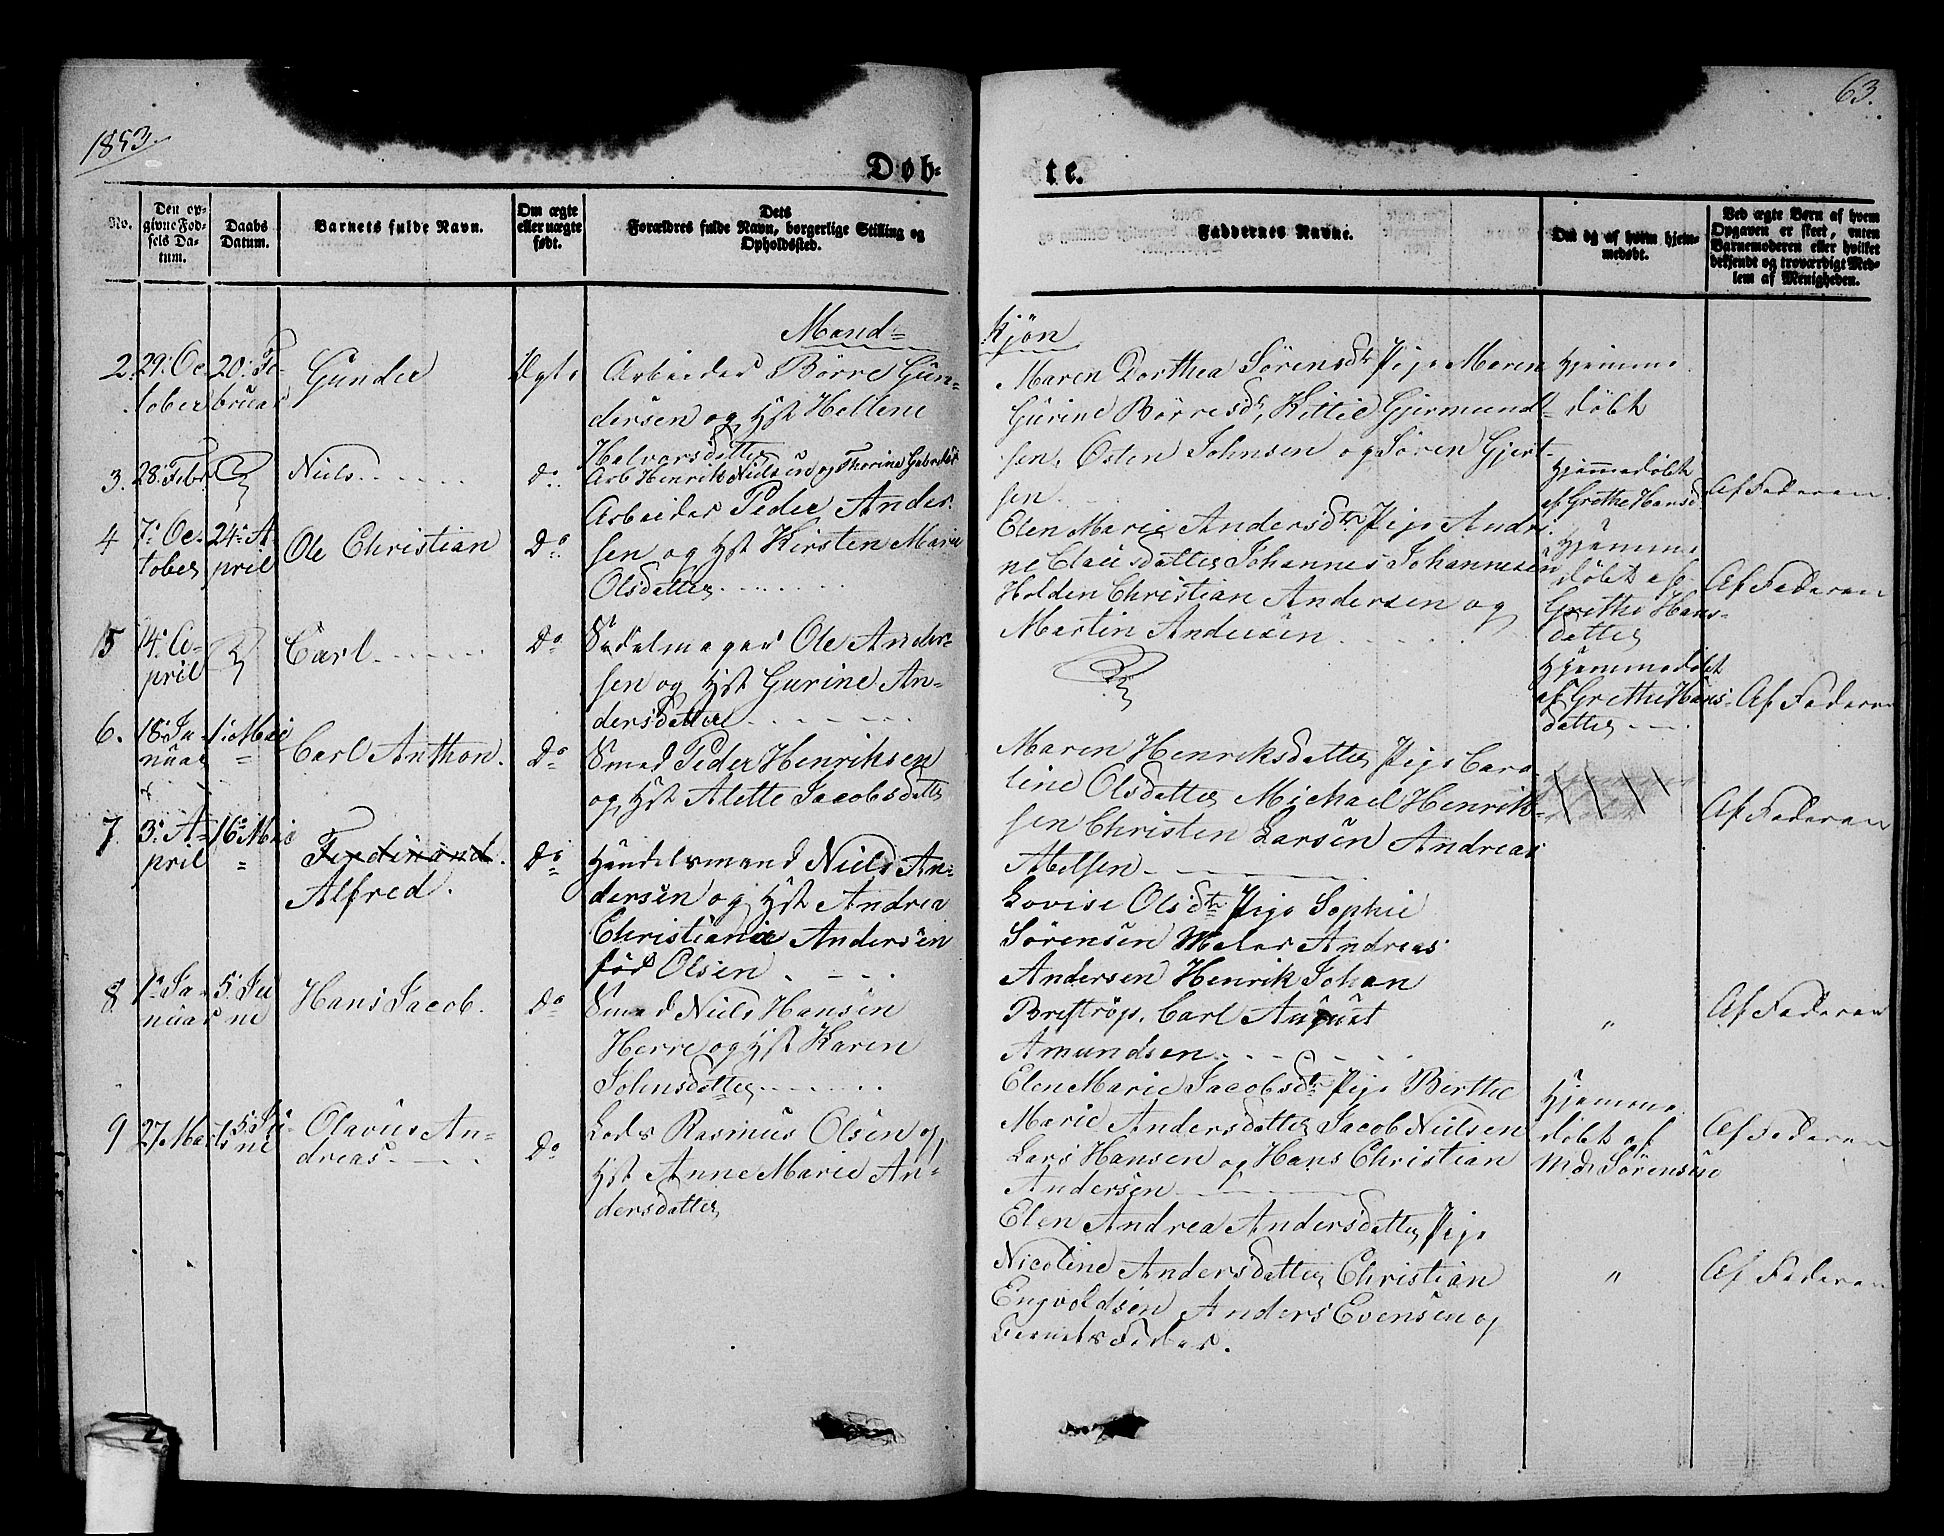 1853.
63.
Døb-
te.
No.
Den op-
givne Fød-
sels Da-
tum.
Daabs
Datum.
Barnets fulde Navn.
Om ægte
eller uægte
født.
Dets
Forældres fulde Navn, borgerlige Stilling og
Opholdssted.
Faddernes Navne.
Om og af hvem hjem-
medøbt.
Ved ægte Børn af hvem
Opgaven er skeet, enten
Barnemoderen eller hvilket
bekjendt og troværdigt Med-
lem af Menigheden.
Mand=
kjøn
2. 29: Oc-
tober
20: Fe-
bruar
Gunder
Ægte
Arbeider Børre Gun-
dersen og Hst Hellene
Halvorsdatter
Maren Dorthea Sørensdtr Pige Maren
Gurine Børresdr, Kittie Gjermund-
sen, Østen Johnsen og Søren Gjert-
sen.
Hjemme
døbt
3. 28: Febr.
Niels
do.
Arb Henrik Nielsen og Thorine
Hjemmedøbt
af Grethe Hansd
Af Faderen.
4 7: Oc-
tober
24: A-
pril
Ole Christian
Do
Arbeider Peder Ander-
sen og Hst Kirsten Marie
Olsdatter
Elen Marie Andersdtr Pige Andri-
ne Clausdatter Johannes Johannesen
Holden Christian Andersen og
Martin Andersen
Hjemme
døbt af
Grethe Hans-
datter
Af Faderen
5 14: A-
pril
Carl
Do
Sadelmager Ole Ander-
sen og Hst Gurine An-
dersdatter
Hjemmedøbt
af Grethe Hans-
datter
Af Faderen
6. 18: Ja-
nuar
1: Mai
"
Carl Anthon.
Do
Smed Peder Henriksen
og Hst Alette Jacobsdatter
Maren Henriksdatter Pige Caro-
line Olsdatter Michael Henrik-
sen Christen Larsen Andreas
Abelsen
Af Faderen
7. 3: A-
pril
16: Mai
"
Ferdinand.
Alfred.
Do
Handelsmand Niels An-
dersen og Hst Andrea
Christiania Andersen
før Olsen
Lovise Olsdtr Pige Sophie
Sørensen Maler Andreas
Andersen Henrik Johan
Brestrøp, Carl August
Amundsen
"
Af Faderen
8 1: Ja-
nuar
5: Ju
ni
Hans Jacob.
Do
Smed Niels Hansen
Herre og Hst Karen
Johnsdatter
Elen Marie Jacobsdtr Pige Berthe
Marie Andersdatter Jacob Nielsen
Lars Hansen og Hans Christian
Andersen
Hjemme
døbt af
Md: Sørensen
Af Faderen
9 27 Marts
5: Ju-
ni
Olavus An-
dreas
Do
Lods Rasmus Olsen og
Hst Anne Marie An-
dersdatter
Elen Andrea Andersdatter Pige
Nicoline Andersdatter Christian
Engvoldsen Anders Evensen og
Barnets Fader.
"
Af Faderen